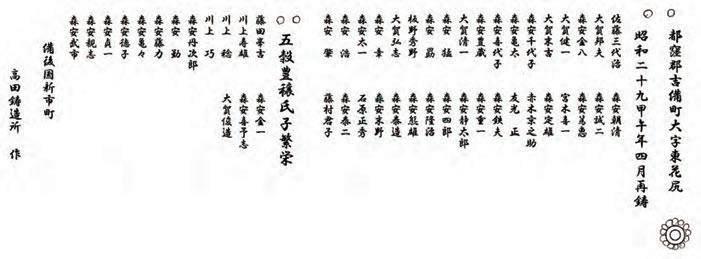 ○ 都窪郡吉備町大字東花尻
○ 昭和二十九甲午年四月再鋳
佐藤三代治 森安朝清
大賀邦夫 森安試二
森安金八 森安萬惠
大賀健一 宮本喜一
大賀末吉 森安定雄
森安千代子 赤木京之助
森安亀太 友光 正
森安喜代子 森安鉄夫
森安豊蔵 森安重一
大賀清一 森安静太郎
森安 猛 森安四郎
森安 勗 森安隆浩
板野秀野 森安熊雄
大賀弘志 森安泰造
森安 幸 森安末野
森安太一 石原正秀
森安 浩 森安泰二
森安 肇 藤村君子
○○ 五穀豊穣氏子繁栄
藤田峯吉 森安金一
川上壽雄 森安喜予志
川上 稔 大賀俊造
川上 巧
森安丹次郎
森安 勤
森安藤力
森安亀々
森安德子
森安貞一
森安親志
森安武市
備後國新市町
高田鋳造所 作